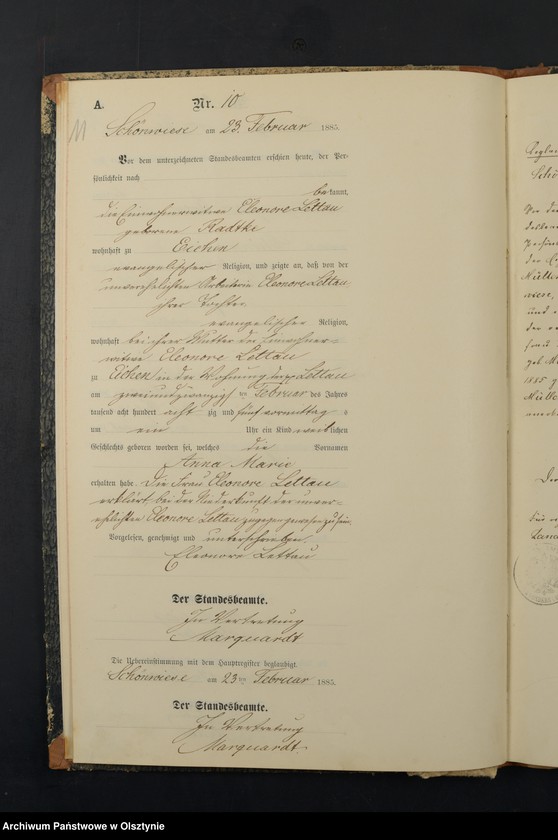 A.
Nr. 10
11
Schönwiese am 23. Februar 1885.
Vor dem unterzeichneten Standesbeamten erschien heute, der Per-
sönlichkeit nach
bekannt,
die Einwohnerwitwe Eleonore Lettau
geborene Radtke
wohnhaft zu Eichen
evangelischer Religion, und zeigte an, daß von der
unverehelichten Arbeiterin Eleonore Lettau
ihrer Tochter
evangelischer Religion,
wohnhaft bei ihrer Mutter der Einwohner-
witwe Eleonore Lettau
zu Eichen in der Wohnung der Lettau
am zweiundzwanzigsten Februar des Jahres
tausend acht hundert achtzig und fünf vormittags
um ein Uhr ein Kind weiblichen
Geschlechts geboren worden sei, welches die Vornamen
Anna Marie
erhalten habe. Die Frau Eleonore Lettau
erklärt bei der Niederkunft der unver-
ehelichten Eleonore Lettau zugegen gewesen zu sein.
Vorgelesen, genehmigt und unterschrieben.
Eleonore Lettau
Der Standesbeamte.
In Vertretung
Marquardt
Die Uebereinstimmung mit dem Hauptregister beglaubigt.
Schönwiese am 23ten Februar 1885.
Der Standesbeamte.
In Vertretung
Marquardt.
Schö
1885
Archiwum Państwowe w Olsztynie